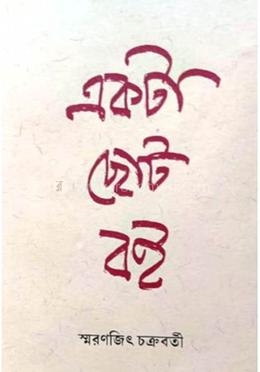 একটা
ছোট
বই
স্মরণজিৎ চক্রবর্তী